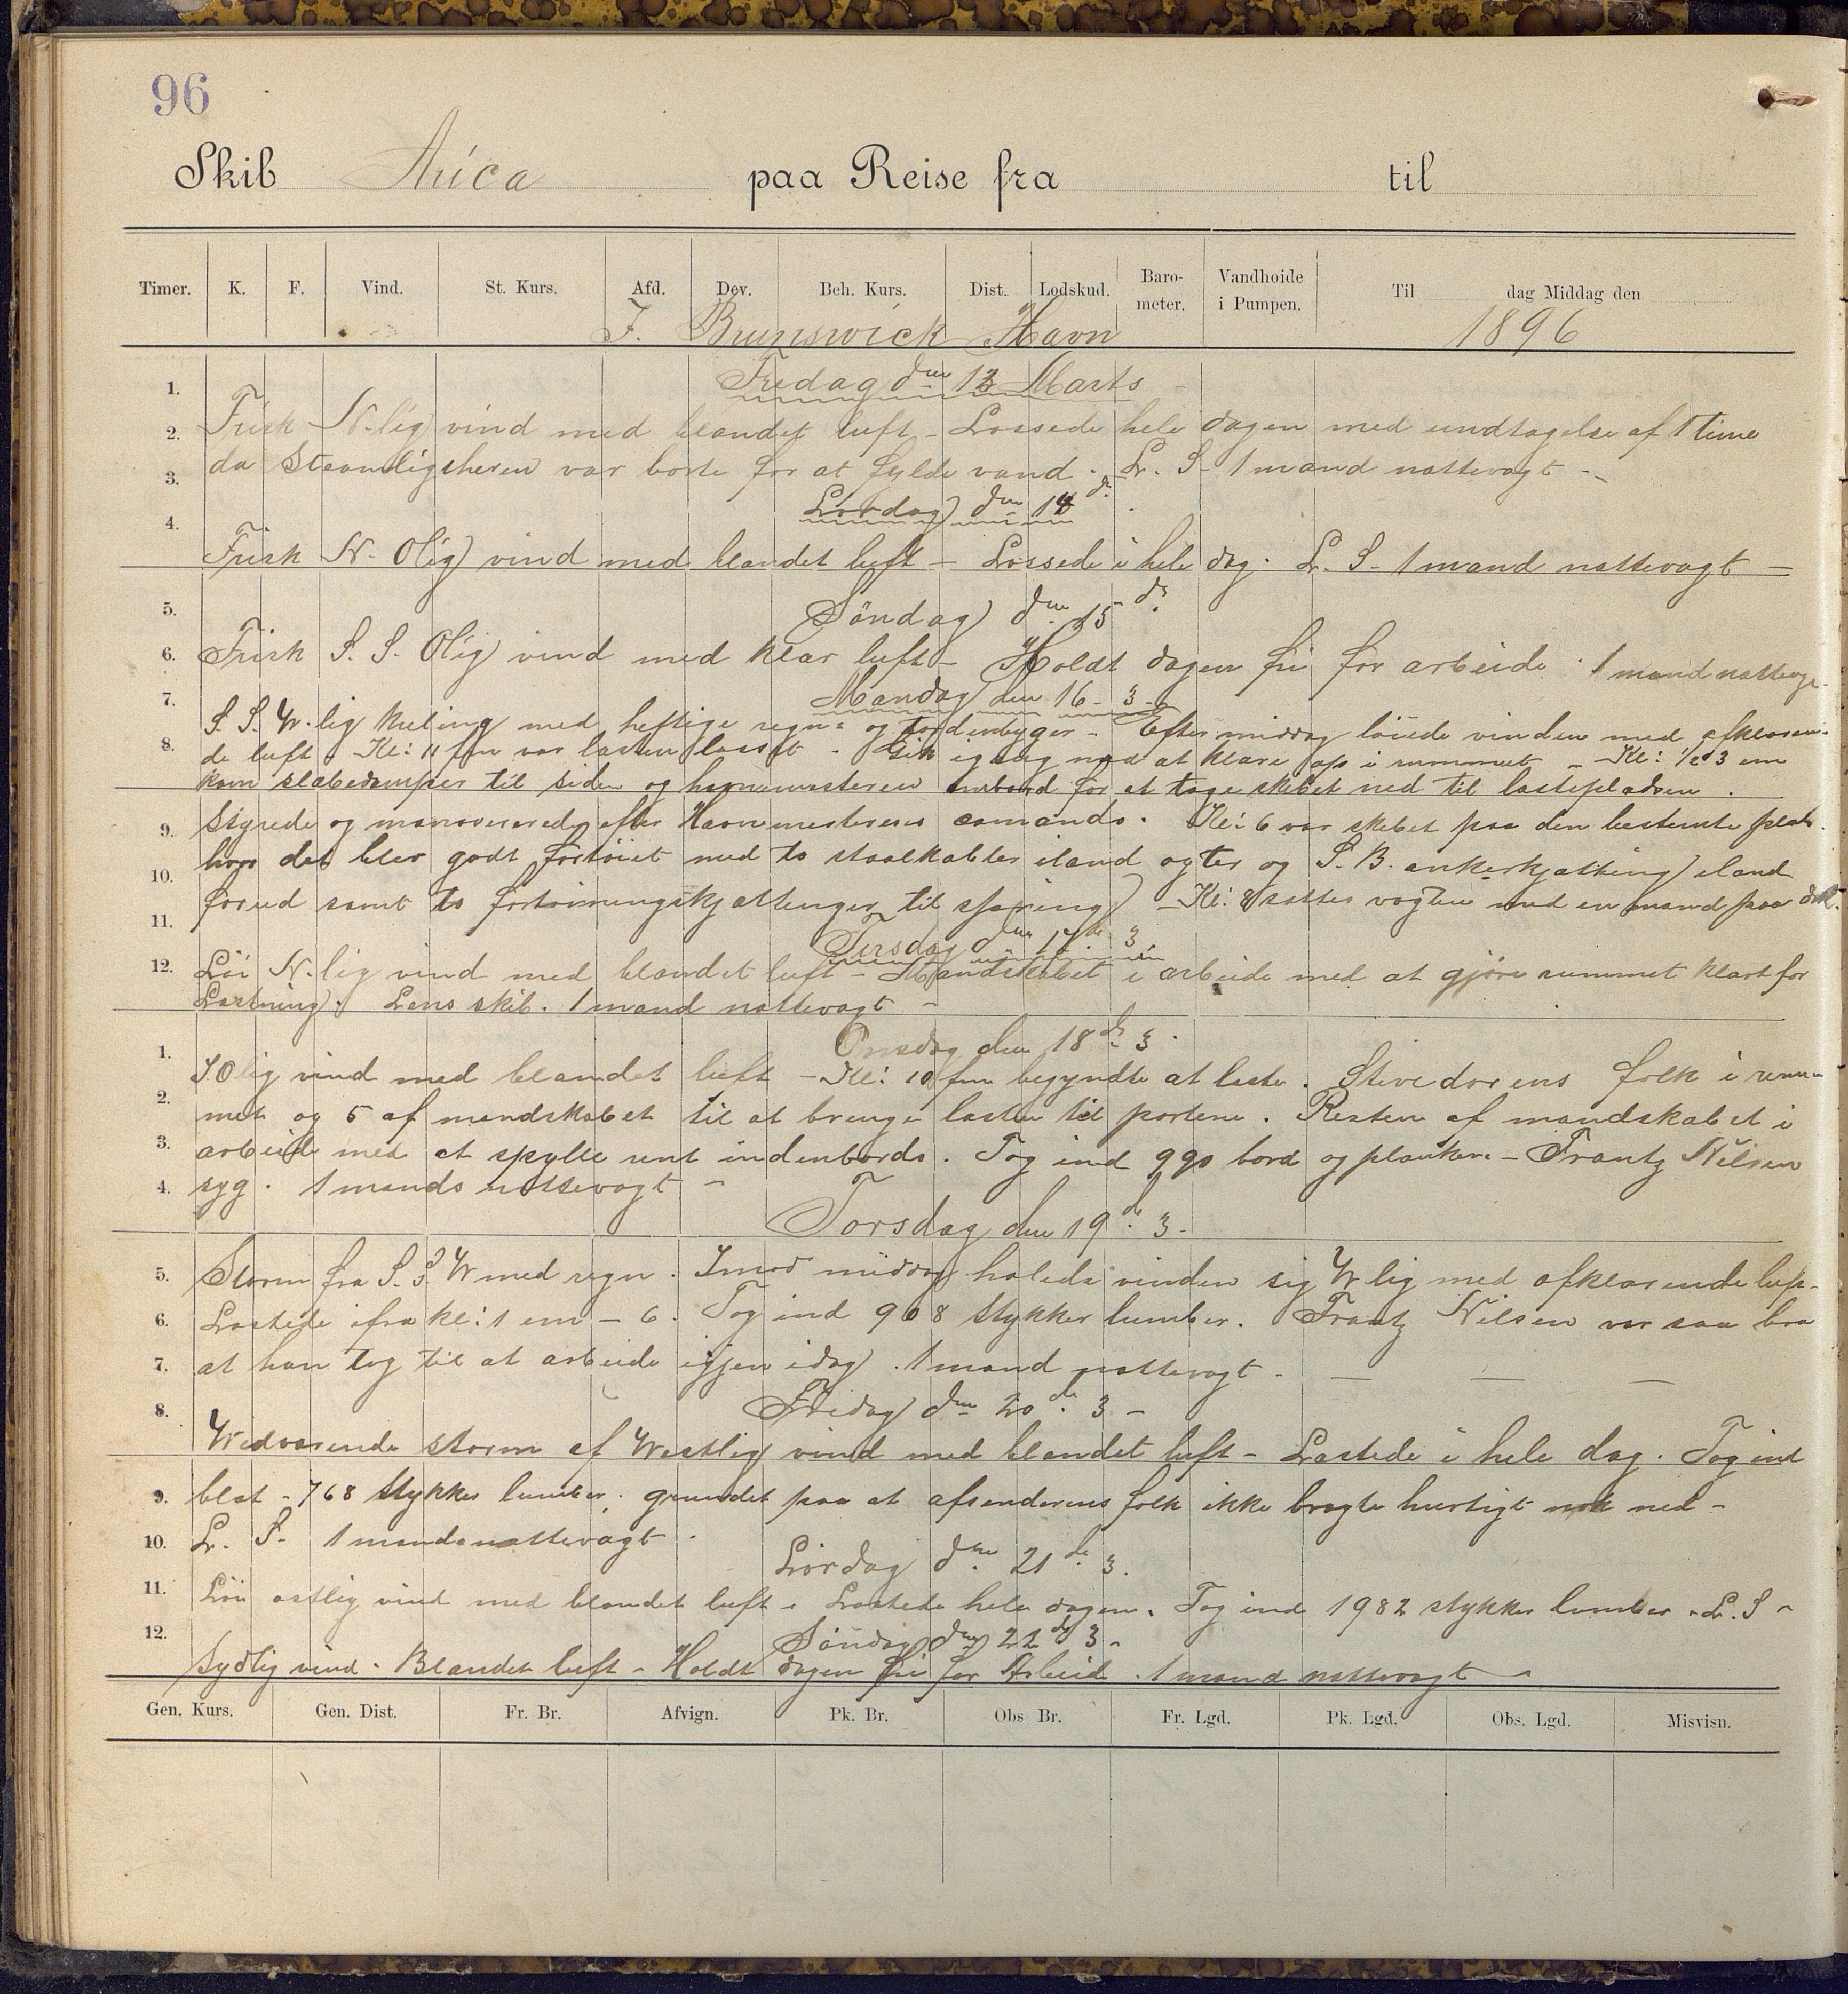 96
Skib Arica paa Reise fra til
Timer. K. F. Vind. St. Kurs. Afd. Dev. Beh. Kurs. Dist. Lodskud. Baro-meter. Vandhoide i Pumpen. Til dag Middag den
I. Brunswick Havn 1896
Fredag den 13 Marts
1.
2. Frisk N-lig vind med blandet luft - Lossede hele dagen med undtagelse af 1 time
3. da Steamligtheren var borte for at fylde vand. L. S - 1 mand nattevagt -
Lördag den 14 d.
4.
Frisk N. Olig vind med blandet luft - Lossede i hele dag. L. S - 1 mand nattevagt -
5. Söndag den 15 d.
6. Frisk S. S. Olig vind med klar luft - Holdt dagen fri for arbeide. 1 mand nattevagt
7. Mandag den 16 - 3 -
S. S. W. lig kuling med heftige regn= og tordenbyger - Eftermiddag löiede vinden med afklaren-
8. de luft. Kl: 11 fm var lasten losset - Gik igang med at klare op i rummet - Kl: ½ 3 em
kom slæbedamper til siden og havnemesteren ombord for at tage skibet ned til lastepladsen.
9. Styrede og manøvrerede efter Havnemesterens comando. Kl: 6 var skibet paa den bestemte plads.
10. hvor det blev godt fortöiet med to staalkabler iland agter og S. B. ankerkjætting iland
11. forud samt to fortöiningskjættinger til spring - Kl: 8 sattes vagten med en mand paa dæk.
Tirsdag den 17 de 3
12. Löi N. lig vind med blandet luft - Mandskabet i arbeide med at gjöre rummet klart for
Lastning. Lens skib. 1 mand nattevagt -
Onsdag den 18 de 3.
1. S.Olig vind med blandet luft - Kl: 10 fm begyndte at laste. Stivedorens folk i rum-
2. met og 5 af mandskabet til at bringe lasten til portene. Resten af mandskabet i
3. arbeide med at spylle rent indenbords. Tog ind 990 bord og planker - Frantz Nilsen
4. syg. 1 mands nattevagt -
Torsdag den 19 de 3 -
5. Storm fra S. S. W med regn. Imod middag halede vinden sig W lig med afklarende luft -
6. Lastede ifra kl: 1 em - 6. Tog ind 908 stykker lumber. Frantz Nilsen var saa bra
7. at han tog til at arbeide igjen idag. 1 mand nattevagt -
8. Fredag den 20 de 3 -
Wedvarende storm af Westlig vind med blandet luft - Lastede i hele dag. Tog ind
9. blot - 768 stykker lumber, grundet paa at afsenderens folk ikke bragte hurtigt nok ned -
10. L. S - 1 mands nattevagt -
Lördag den 21 de 3.
11. Löi ostlig vind med blandet luft - Lastede hele dagen. Tog ind 1982 stykker lumber - L. S -
12. Söndag den 22 de 3 -
Sydlig vind - Blandet luft - Holdt dagen fri for Arbeide. 1 mand nattevagt -
Gen. Kurs. Gen. Dist. Fr. Br. Afvign. Pk. Br. Obs Br. Fr. Lgd. Pk. Lgd. Obs. Lgd. Misvisn.